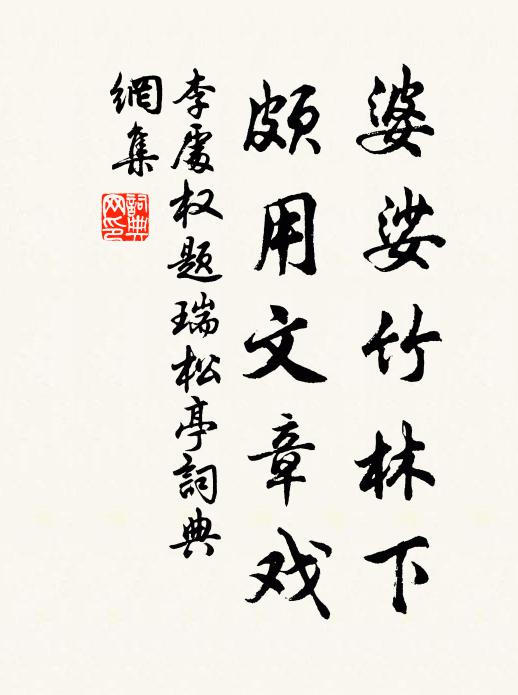 婆娑竹林下
颇用文章戏
李處权题瑞松亭詞典
網集
詞典网印